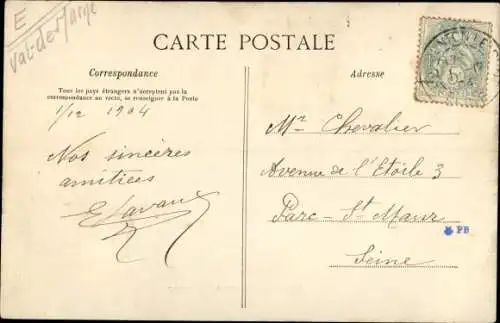 E
Val-de-Marne
CARTE POSTALE
Correspondance
Tous les pays étrangers n'acceptent pas la
correspondance au recto, se renseigner à la Poste
Adresse
1/12 1904
Nos sincères
amitiées
Mr Chevalier
Avenue de l'Etoile 3
Parc-St Maur
Seine
PB